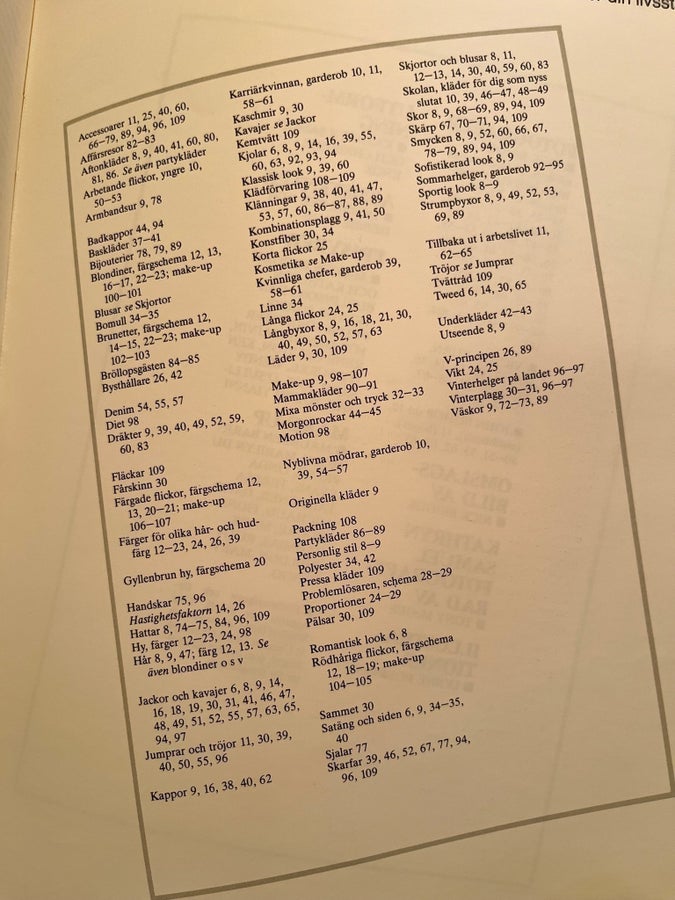 din livsst
Accessoarer 11, 25, 40, 60,
66–79, 89, 94, 96, 109
Affärsresor 82–83
Aftonkläder 8, 9, 40, 41, 60, 80,
81, 86. Se även partykläder
Arbetande flickor, yngre 10,
50–53
Armbandsur 9, 78
Badkappor 44, 94
Baskläder 37–41
Bijouterier 78, 79, 89
Blondiner, färgschema 12, 13,
16–17, 22–23; make-up
100–101
Blusar se Skjortor
Bomull 34–35
Brunetter, färgschema 12,
14–15, 22–23; make-up
102–103
Bröllopsgästen 84–85
Bysthållare 26, 42
Denim 54, 55, 57
Diet 98
Dräkter 9, 39, 40, 49, 52, 59,
60, 83
Fläckar 109
Fårskinn 30
Färgade flickor, färgschema 12,
13, 20–21; make-up
106–107
Färger för olika hår- och hud-
färg 12–23, 24, 26, 39
Gyllenbrun hy, färgschema 20
Handskar 75, 96
Hastighetsfaktorn 14, 26
Hattar 8, 74–75, 84, 96, 109
Hy, färger 12–23, 24, 98
Hår 8, 9, 47; färg 12, 13. Se
även blondiner o s v
Jackor och kavajer 6, 8, 9, 14,
16, 18, 19, 30, 31, 41, 46, 47,
48, 49, 51, 52, 55, 57, 63, 65,
94, 97
Jumprar och tröjor 11, 30, 39,
40, 50, 55, 96
Kappor 9, 16, 38, 40, 62
Karriärkvinnan, garderob 10, 11,
58–61
Kaschmir 9, 30
Kavajer se Jackor
Kemtvätt 109
Kjolar 6, 8, 9, 14, 16, 39, 55,
60, 63, 92, 93, 94
Klassisk look 9, 39, 60
Klädförvaring 108–109
Klänningar 9, 38, 40, 41, 47,
53, 57, 60, 86–87, 88, 89
Kombinationsplagg 9, 41, 50
Konstfiber 30, 34
Korta flickor 25
Kosmetika se Make-up
Kvinnliga chefer, garderob 39,
58–61
Linne 34
Långa flickor 24, 25
Långbyxor 8, 9, 16, 18, 21, 30,
40, 49, 50, 52, 57, 63
Läder 9, 30, 109
Make-up 9, 98–107
Mammakläder 90–91
Mixa mönster och tryck 32–33
Morgonrockar 44–45
Motion 98
Nyblivna mödrar, garderob 10,
39, 54–57
Originella kläder 9
Packning 108
Partykläder 86–89
Personlig stil 8–9
Polyester 34, 42
Pressa kläder 109
Problemlösaren, schema 28–29
Proportioner 24–29
Pälsar 30, 109
Romantisk look 6, 8
Rödhåriga flickor, färgschema
12, 18–19; make-up
104–105
Sammet 30
Satäng och siden 6, 9, 34–35,
40
Sjalar 77
Skarfar 39, 46, 52, 67, 77, 94,
96, 109
Skjortor och blusar 8, 11,
12–13, 14, 30, 40, 59, 60, 83
Skolan, kläder för dig som nyss
slutat 10, 39, 46–47, 48–49
Skor 8, 9, 68–69, 89, 94, 109
Skärp 67, 70–71, 94, 109
Smycken 8, 9, 52, 60, 66, 67,
78–79, 89, 94, 109
Sofistikerad look 8, 9
Sommarhelger, garderob 92–95
Sportig look 8–9
Strumpbyxor 8, 9, 49, 52, 53,
69, 89
Tillbaka ut i arbetslivet 11,
62–65
Tröjor se Jumprar
Tvättråd 109
Tweed 6, 14, 30, 65
Underkläder 42–43
Utseende 8, 9
V-principen 26, 89
Vikt 24, 25
Vinterhelger på landet 96–97
Vinterplagg 30–31, 96–97
Väskor 9, 72–73, 89